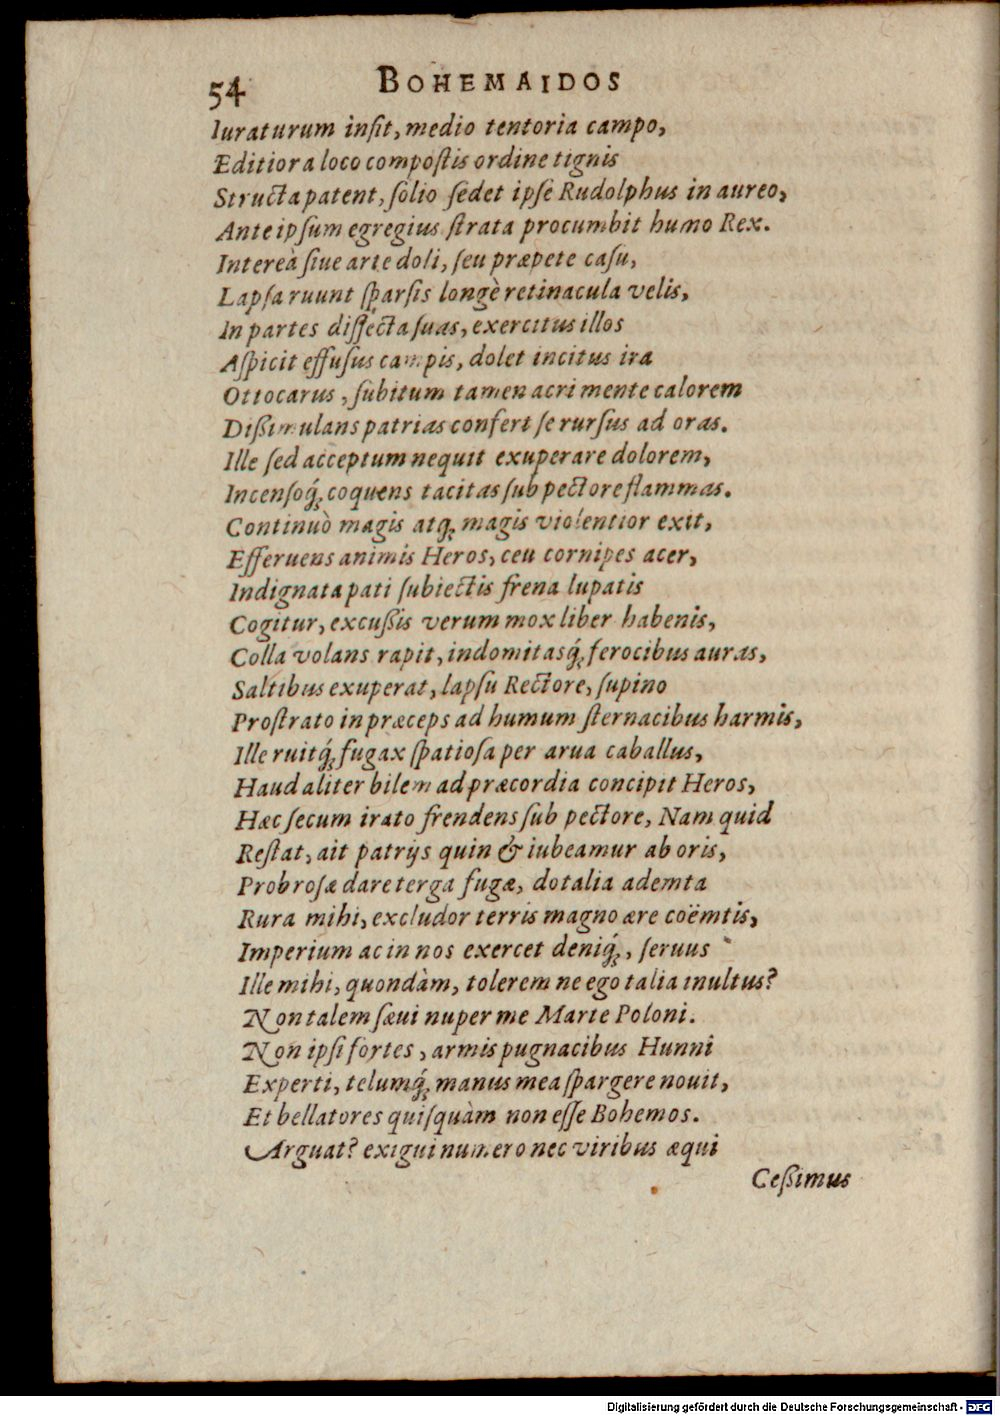 54 BOHEMAIDOS
Iuraturum inſit, medio tentoria campo,
Editiora loco compoſtis ordine tignis
Structa patent, ſolio ſedet ipſe Rudolphus in aureo,
Ante ipſum egregius ſtrata procumbit humo Rex.
Intereà ſiue arte doli, ſeu præpete caſu,
Lapſa ruunt ſparſis longè retinacula velis,
In partes diſſecta ſuas, exercitus illos
Aſpicit effuſus campis, dolet incitus ira
Ottocarus, ſubitum tamen acri mente calorem
Dißimulans patrias confert ſe rurſus ad oras.
Ille ſed acceptum nequit exuperare dolorem,
Incenſoq́; coquens tacitas ſub pectore flammas.
Continuò magis atq; magis violentior exit,
Efferuens animis Heros, ceu cornipes acer,
Indignata pati ſubiectis frena lupatis
Cogitur, excußis verum mox liber habenis,
Colla volans rapit, indomitasq́; ferocibus auras,
Saltibus exuperat, lapſu Rectore, ſupino
Proſtrato in præceps ad humum ſternacibus harmis,
Ille ruitq́; fugax ſpatioſa per arua caballus,
Haud aliter bilem ad præcordia concipit Heros,
Hæc ſecum irato frendens ſub pectore, Nam quid
Reſtat, ait patrijs quin & iubeamur ab oris,
Probroſæ dare terga fugæ, dotalia ademta
Rura mihi, excludor terris magno ære coëmtis,
Imperium ac in nos exercet deniq́;, ſeruus
Ille mihi, quondàm, tolerem ne ego talia inultus?
Non talem ſæui nuper me Marte Poloni.
Non ipſi fortes, armis pugnacibus Hunni
Experti, telumq́; manus mea ſpargere nouit,
Et bellatores quiſquàm non eſſe Bohemos.
Arguat? exigui numero nec viribus æqui
Ceßimus
Digitalisierung gefördert durch die Deutsche Forschungsgemeinschaft - DFG